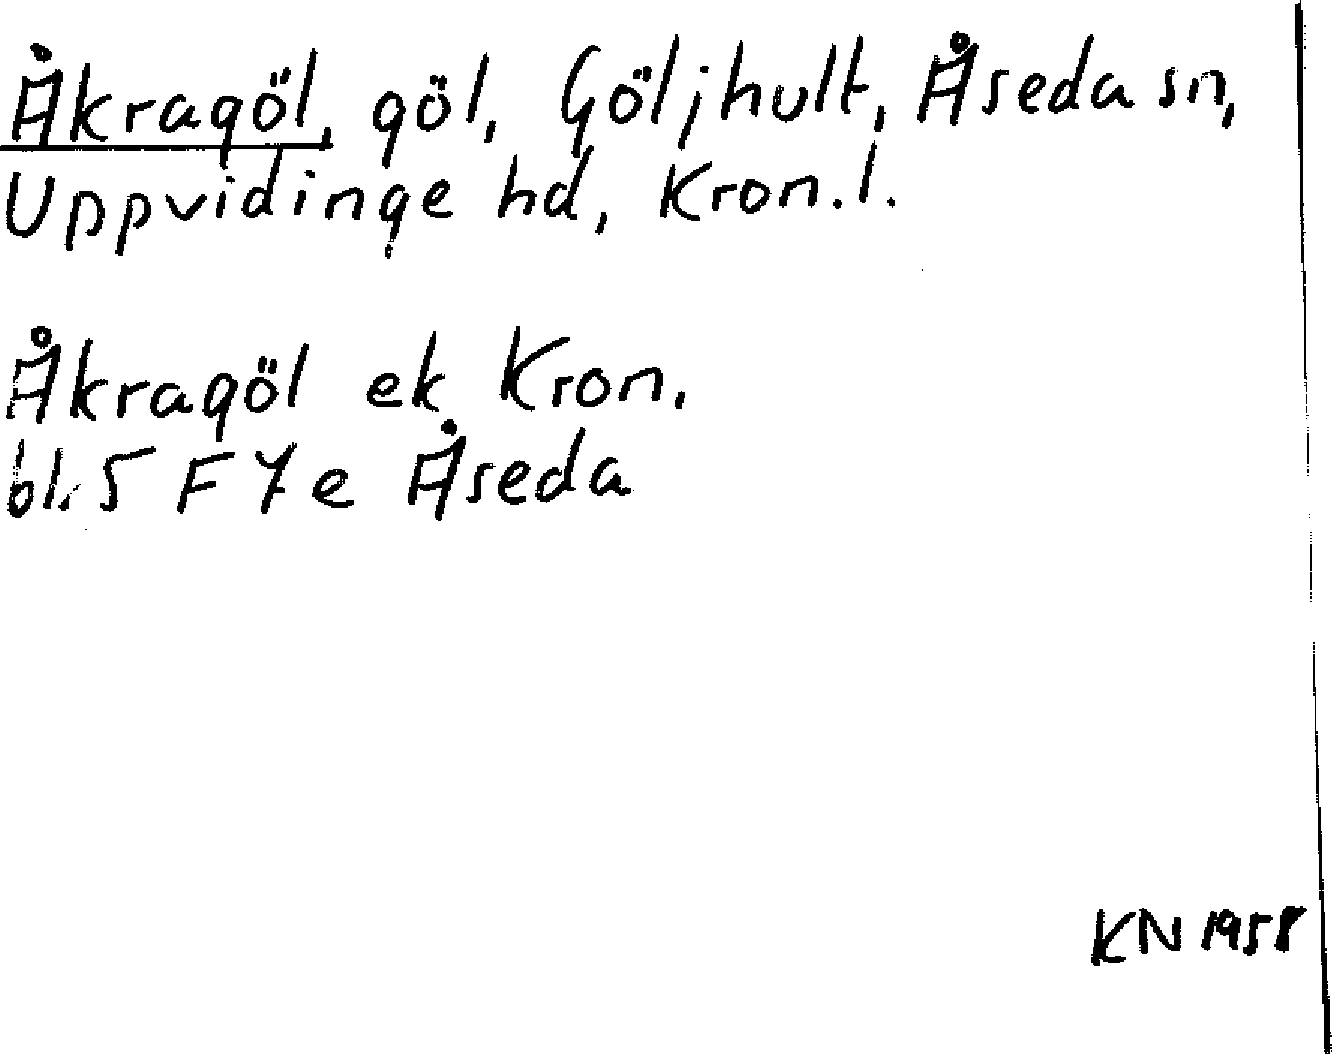 Åkragöl, göl, Göljhult, Åseda sn,
Uppvidinge hd, Kron. l.
Åkragöl ek Kron.
bl. 5 F 7 e Åseda
KN 1958